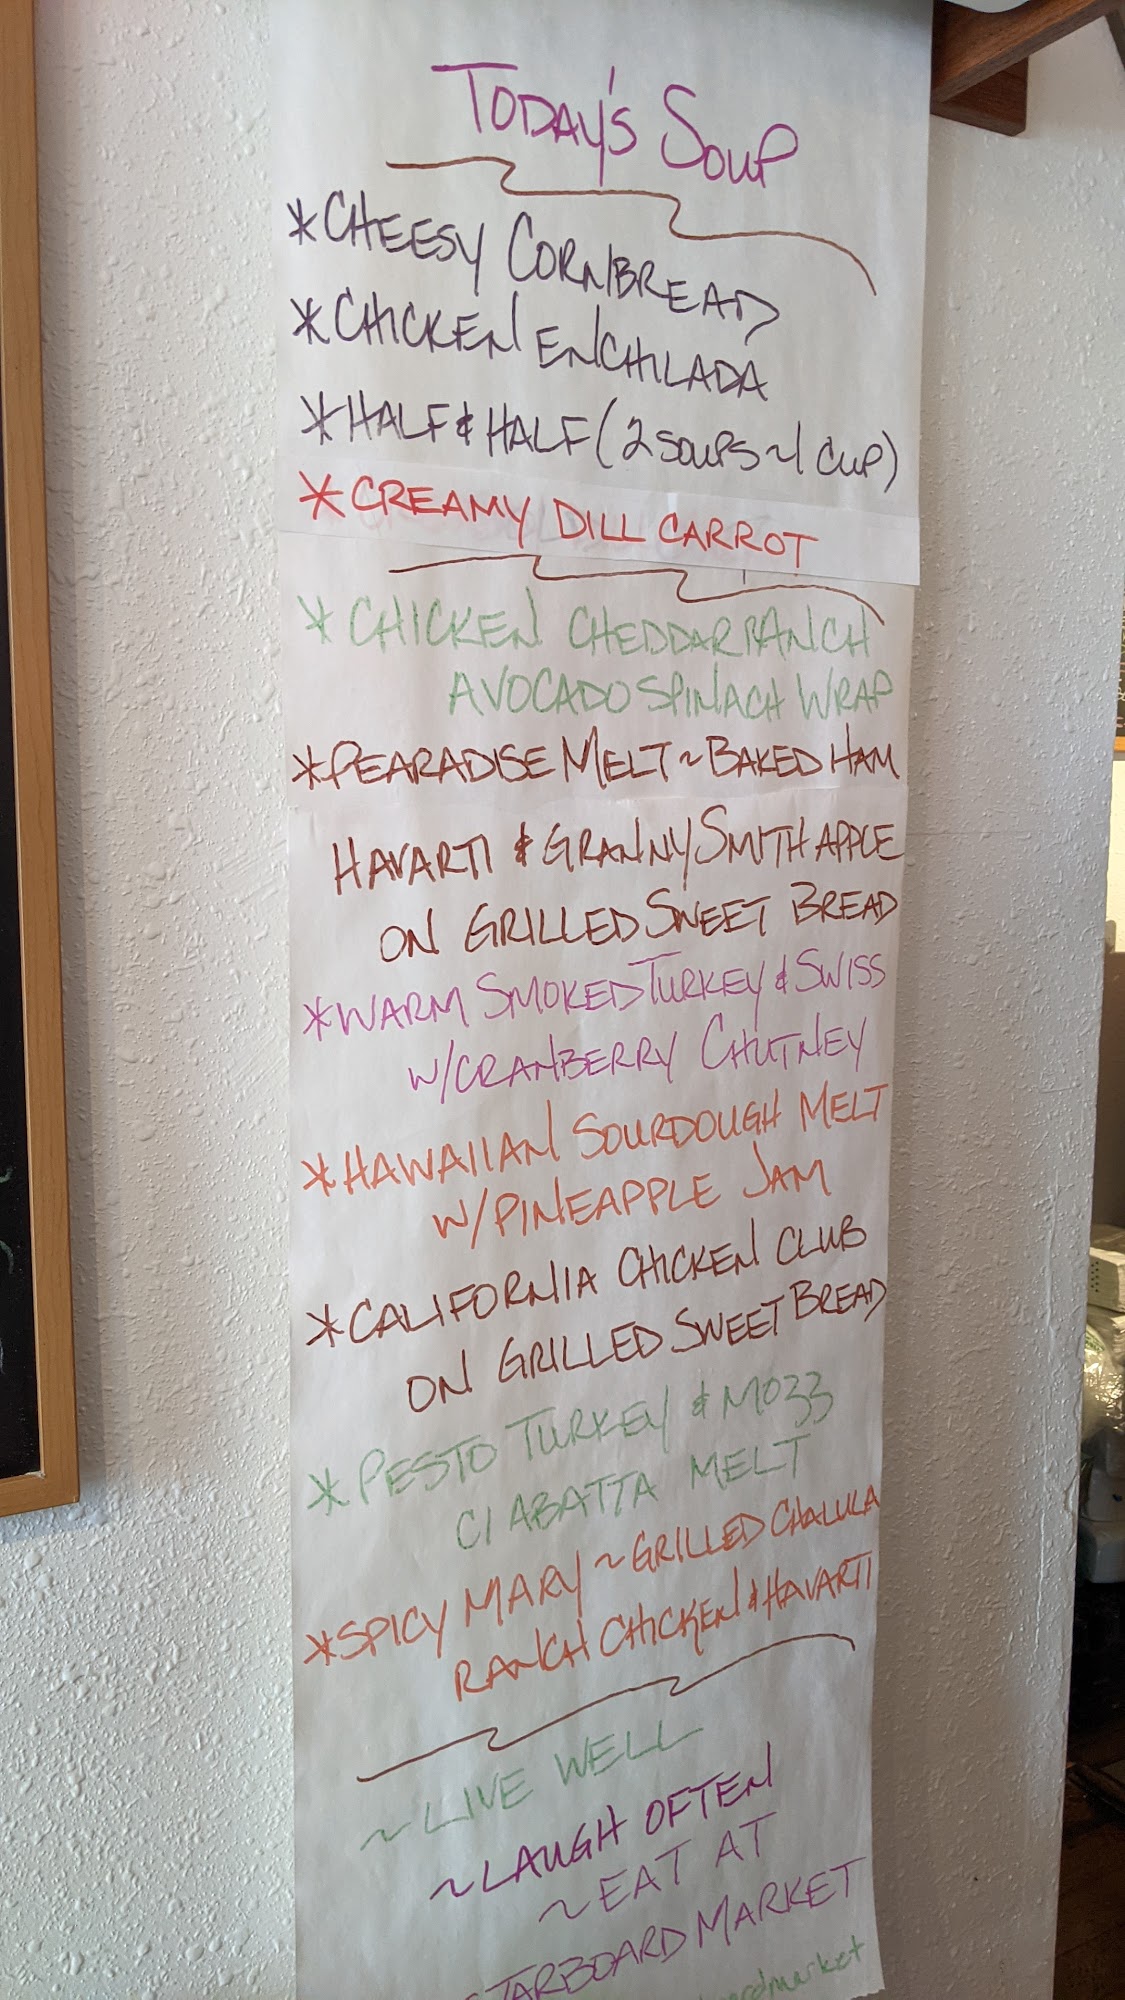 TODAY'S SOUP
*CHEESY CORNBREAD
*CHICKEN ENCHILADA
*HALF & HALF (2 SOUPS ~ 1 CUP)
*CREAMY DILL CARROT
*CHICKEN CHEDDAR RANCH
AVOCADO SPINACH WRAP
*PEARADISE MELT ~ BAKED HAM
HAVARTI & GRANNY SMITH APPLE
ON GRILLED SWEET BREAD
*WARM SMOKED TURKEY & SWISS
W/CRANBERRY CHUTNEY
*HAWAIIAN SOURDOUGH MELT
W/PINEAPPLE JAM
*CALIFORNIA CHICKEN CLUB
ON GRILLED SWEET BREAD
*PESTO TURKEY & MOZZ
CIABATTA MELT
*SPICY MARY ~ GRILLED CHALULA
RANCH CHICKEN & HAVARTI
~LIVE WELL
~LAUGH OFTEN
~EAT AT
STARBOARD MARKET